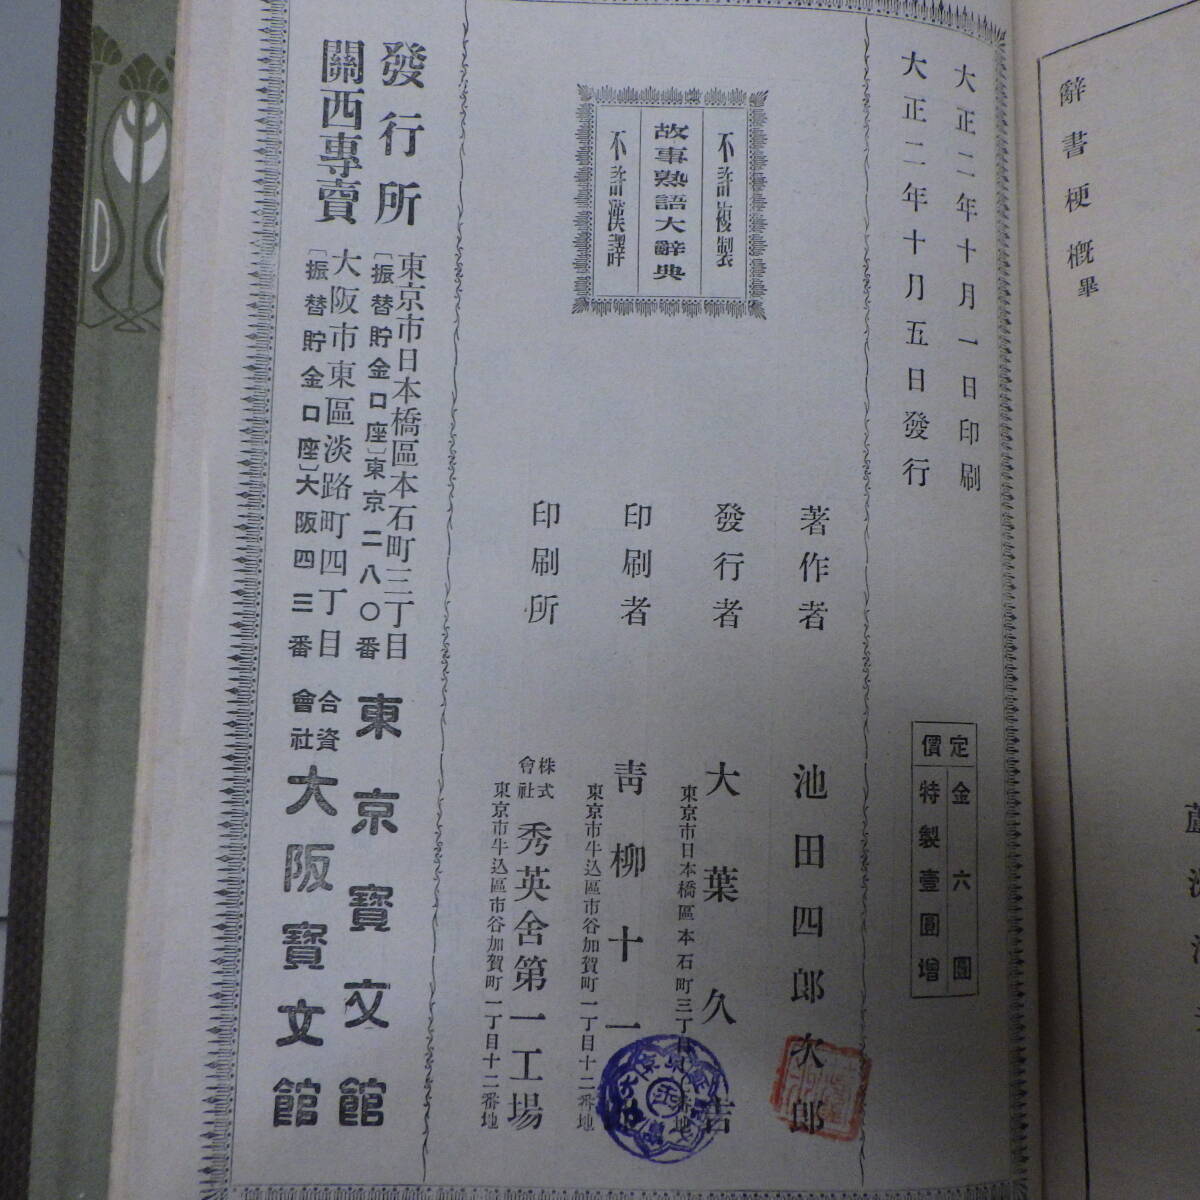 辭書梗概 畢
大正二年十月一日印刷
大正二年十月五日發行
定價
金六圓
特製壹圓增
不許複製
故事熟語大辭典
不許漢譯
著作者 池田四郎次郎
發行者 大葉久吉
東京市日本橋區本石町三丁目
印刷者 靑柳十一郎
東京市牛込區市谷加賀町一丁目十二番地
印刷所 株式會社 秀英舍第一工場
東京市牛込區市谷加賀町一丁目十二番地
發行所 東京市日本橋區本石町三丁目 東京寶文館
〔振替貯金口座〕東京二八〇番
關西專賣 大阪市東區淡路町四丁目 合資會社 大阪寶文館
〔振替貯金口座〕大阪四三番